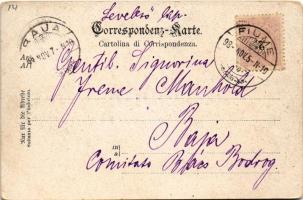 Levelező lap.
Correspondenz-Karte.
Cartolina di Corrispondenza.
BAJA
FIUME
An
Gentil. Signorina
Irene Manhold
in
Baja
Comitato Bács Bodrog.
Nur für die Adresse